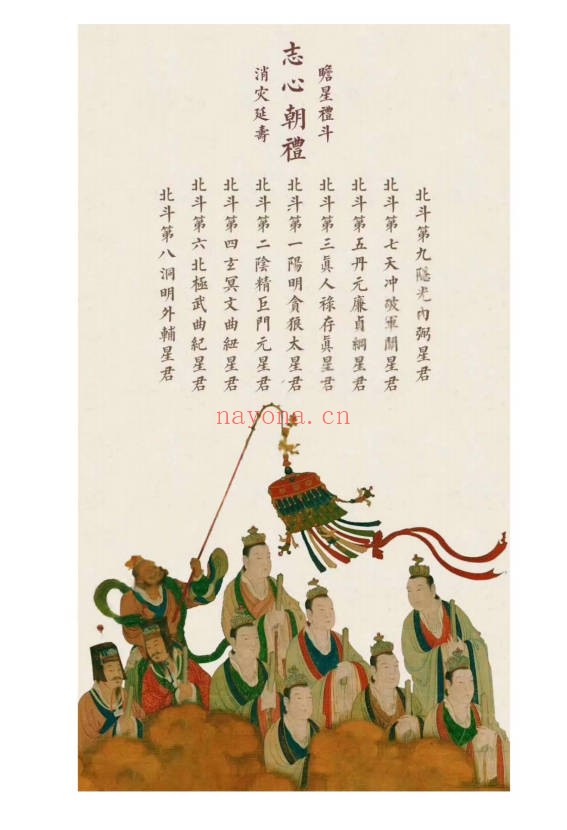 瞻星禮斗
志心朝禮
消灾延壽
北斗第九隱光內弼星君
北斗第七天冲破軍關星君
北斗第五丹元廉貞綱星君
北斗第三眞人祿存眞星君
北斗第一陽明貪狼太星君
北斗第二陰精巨門元星君
北斗第四玄冥文曲紐星君
北斗第六北極武曲紀星君
北斗第八洞明外輔星君
nayona.cn